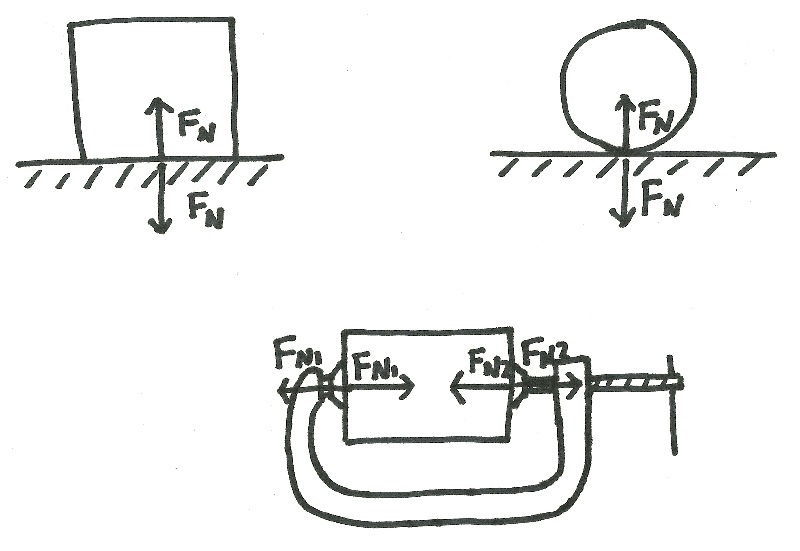 F_N
F_N
F_N
F_N
F_N1
F_N1
F_N2
F_N2